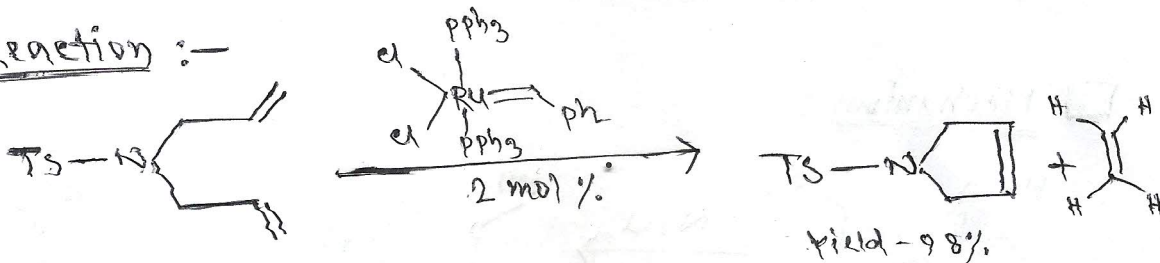 Reaction :-
pph3
Cl
Ru
ph
Cl
pph3
Ts-N
2 mol %.
Ts-N
+
H H
H H
yield - 98%.